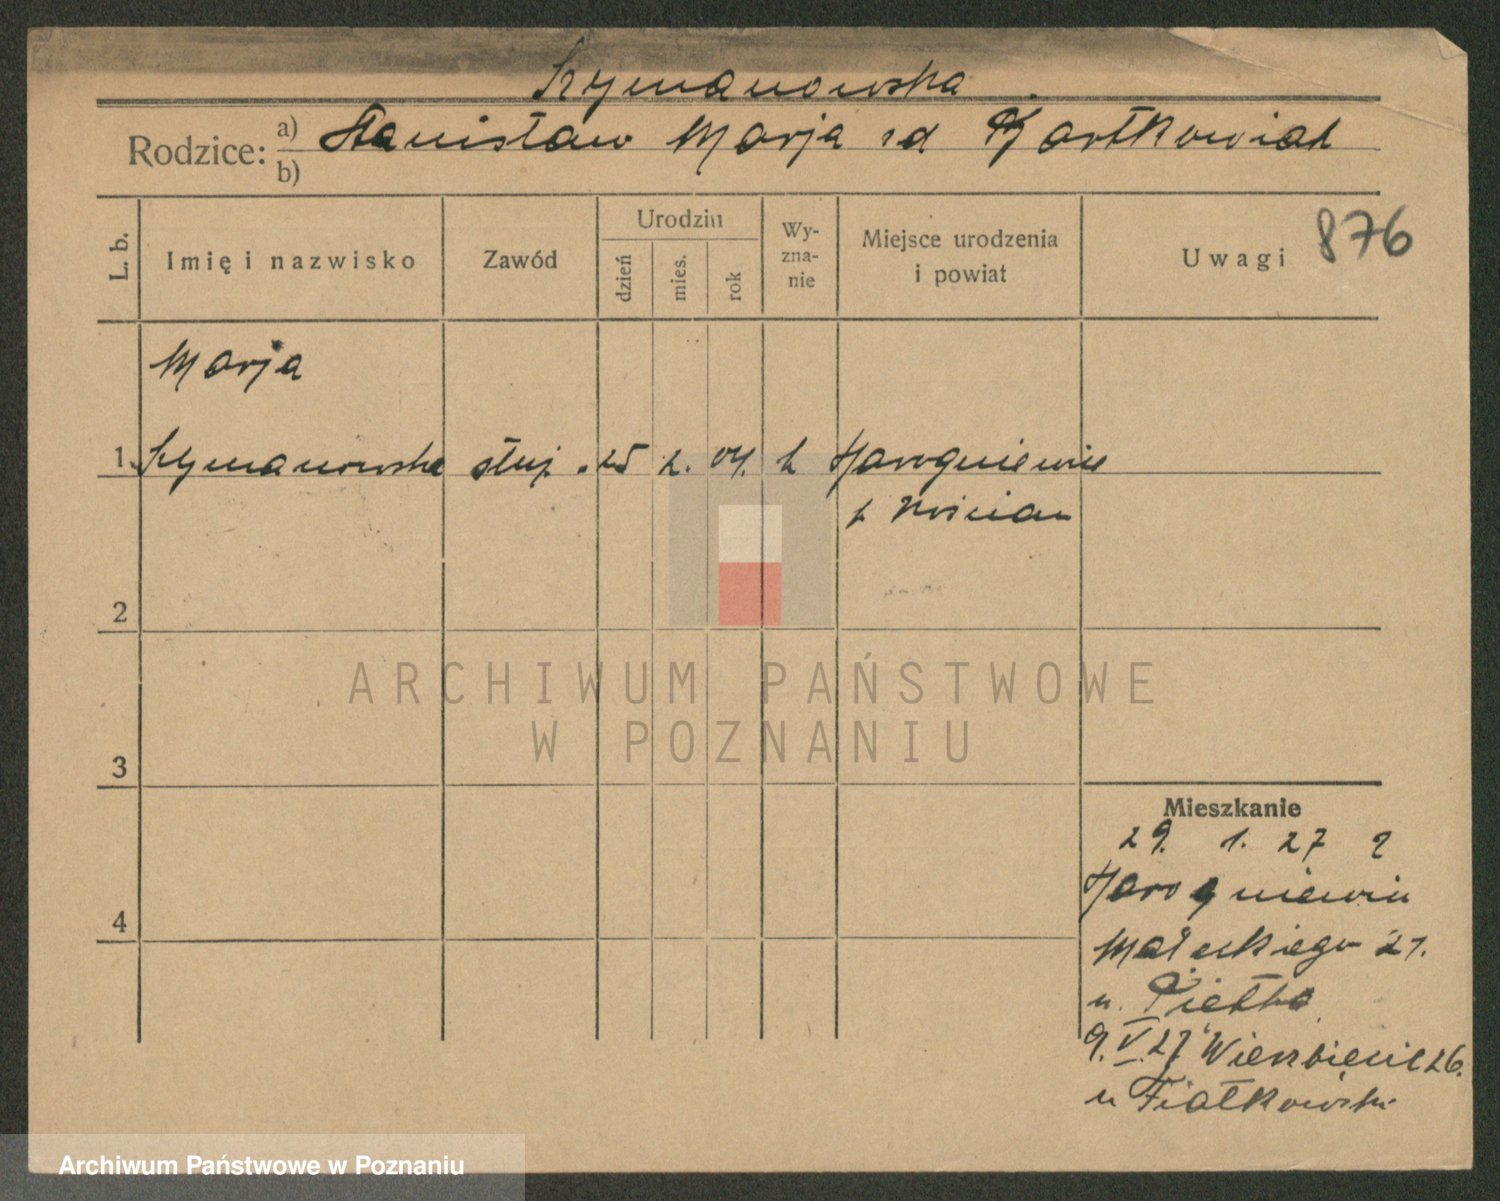 Szymanowska
Rodzice: a) Stanisław Marja zd Bartkowiak
b)
L. b. Imię i nazwisko Zawód Urodziu dzień mies. rok Wy-zna-nie Miejsce urodzenia i powiat Uwagi 876
Marja
1. Szymanowska służ. 25 2. 04. k Jarogniewice
p Kościan
2
3
4
Mieszkanie
29. 1. 27 z
Jarogniewic
Małeckiego 21.
u. Piełka
9. V. 27 Wierzbięcice 26.
u Fiałkowski
ARCHIWUM PAŃSTWOWE
W POZNANIU
Archiwum Państwowe w Poznaniu